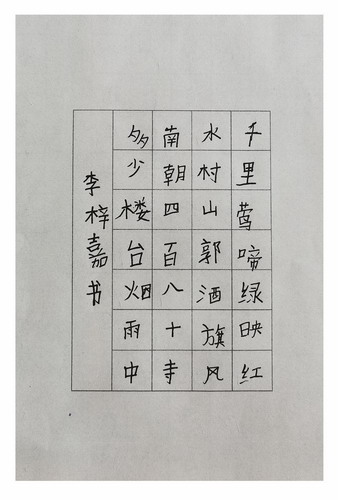 千里莺啼绿映红
水村山郭酒旗风
南朝四百八十寺
多少楼台烟雨中
李梓嘉书